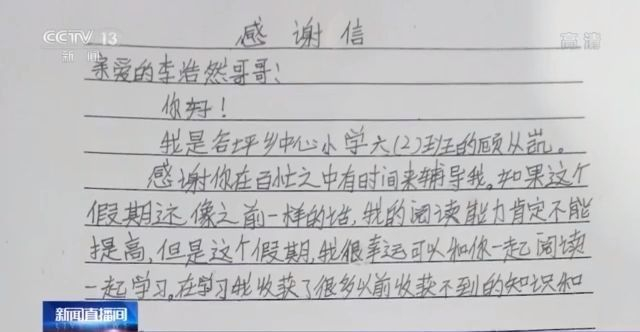 CCTV 13
新闻
高清
感谢信
亲爱的李浩然哥哥!
你好!
我是各坪乡中心小学六(2)班的顾从凯。
感谢你在百忙之中有时间来辅导我。如果这个
假期还像之前一样的话,我的阅读能力肯定不能
提高,但是这个假期,我很幸运可以和你一起阅读
一起学习。在学习我收获了很多以前收获不到的知识和
新闻直播间